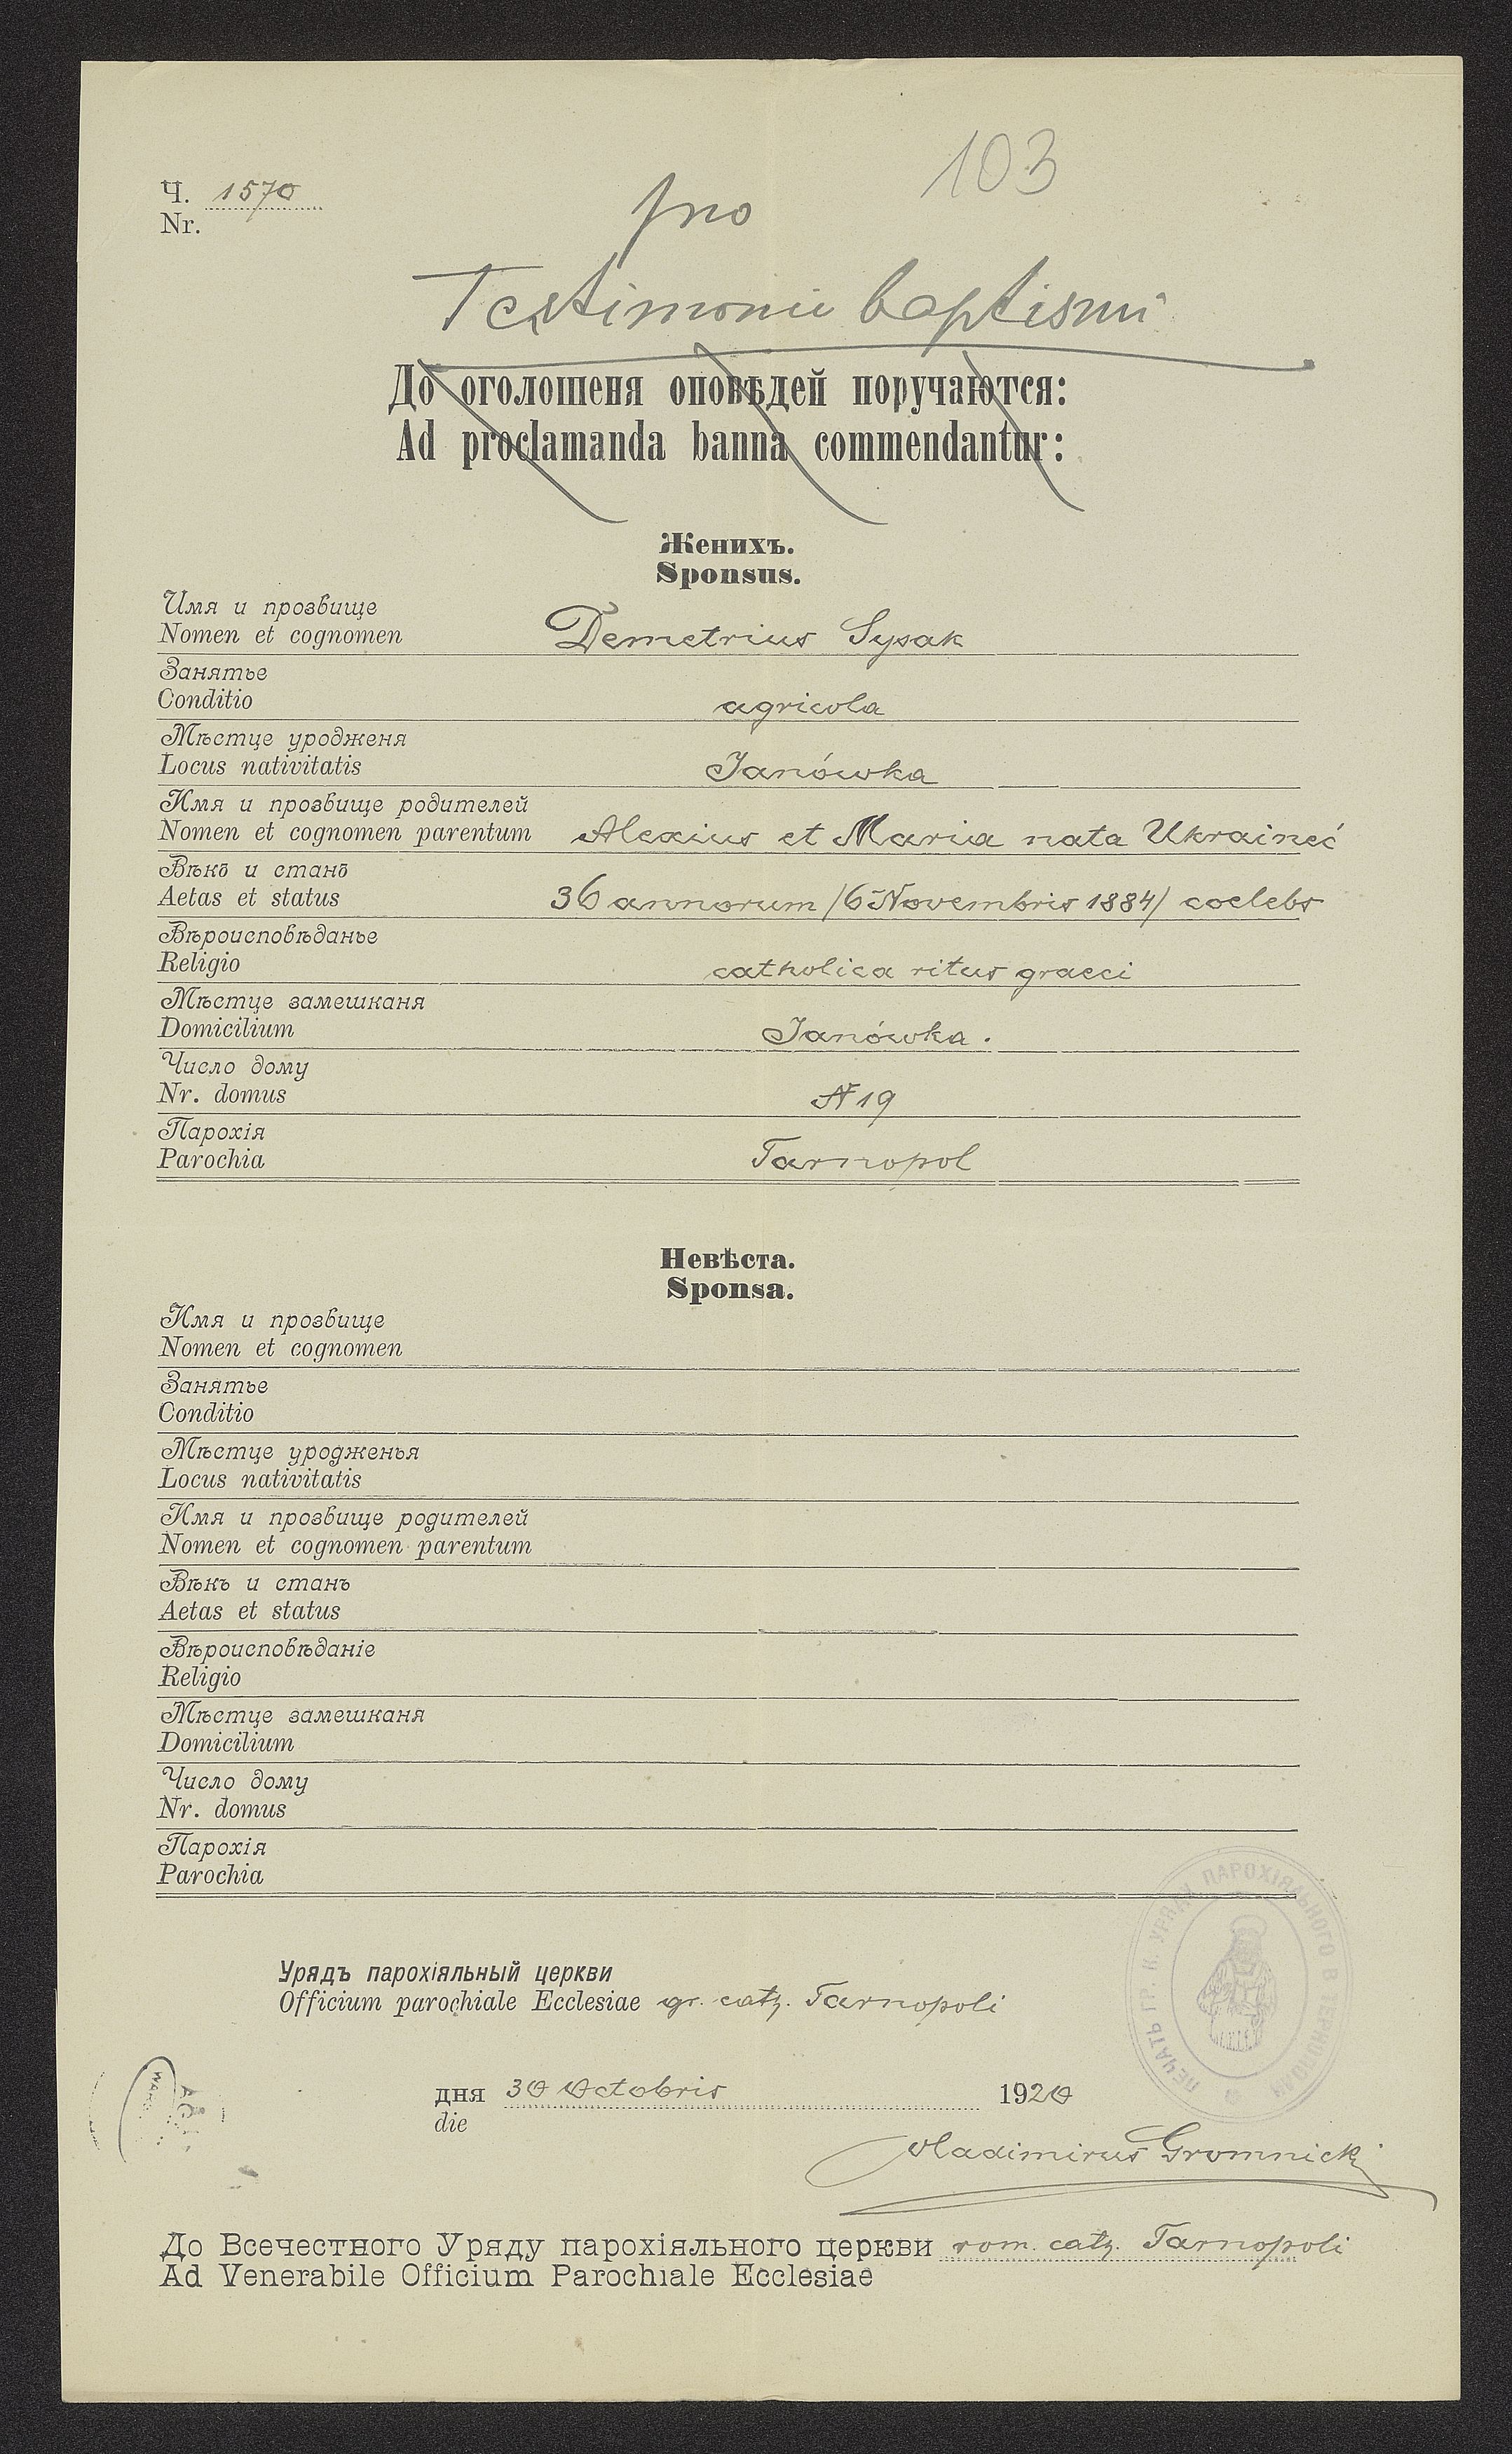 103
Ч. 1570
Nr.
pro
Testimonii baptismi
До оголошеня оповѣдей поручаются:
Ad proclamanda banna commendantur:
Женихъ.
Sponsus.
Имя и прозвище
Nomen et cognomen Demetrius Sysak
Занятье
Conditio agricola
Мѣстце уродженя
Locus nativitatis Janówka
Имя и прозвище родителей
Nomen et cognomen parentum Alexius et Maria nata Ukraineć
Вѣкъ и станъ
Aetas et status 36 annorum /6 Novembris 1884/ coelebs
Вѣроисповѣданье
Religio catholica ritus graeci
Мѣстце замешканя
Domicilium Janówka.
Число дому
Nr. domus N 19
Парохія
Parochia Tarnopol
Невѣста.
Sponsa.
Имя и прозвище
Nomen et cognomen
Занятье
Conditio
Мѣстце уродженья
Locus nativitatis
Имя и прозвище родителей
Nomen et cognomen parentum
Вѣкъ и станъ
Aetas et status
Вѣроисповѣданіе
Religio
Мѣстце замешканя
Domicilium
Число дому
Nr. domus
Парохія
Parochia
ПЕЧАТЬ ГР. К. УРЯДУ ПАРОХІЯЛЬНОГО В ТЕРНОПОЛИ
Урядъ парохіяльный церкви
Officium parochiale Ecclesiae gr. cath. Tarnopoli
дня 30 Octobris 1920
die
Vladimirus Gromnicki
До Всечестного Уряду парохіяльного церкви rom. cath. Tarnopoli
Ad Venerabile Officium Parochiale Ecclesiae